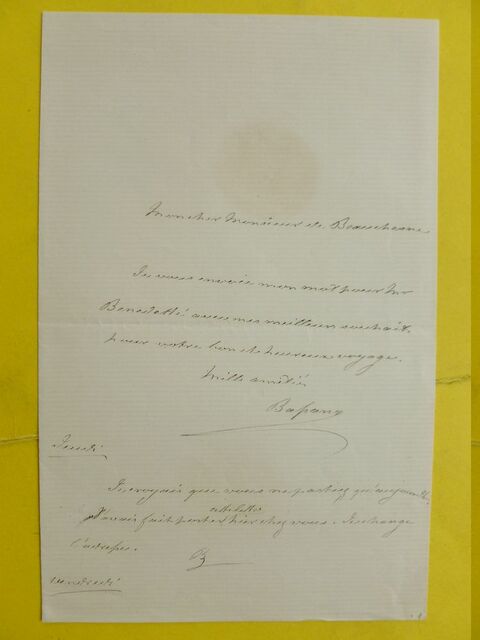 Mon cher Monsieur de Beauchesne
Je vous envoie mon mot pour Mr
Benedetti avec mes meilleurs souhaits
pour votre bon et heureux voyage.
Mille amitiés
Jeudi
Je croyais que vous ne partiez qu'aujourd'h.
cette lettre
J'avais fait porter hier chez vous. Je change
l'adresse.
B
Vendredi